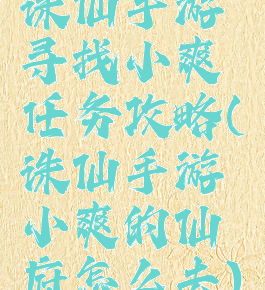 诛仙手游
寻找小爽
任务攻略(
诛仙手游
小爽的仙
府怎么去)